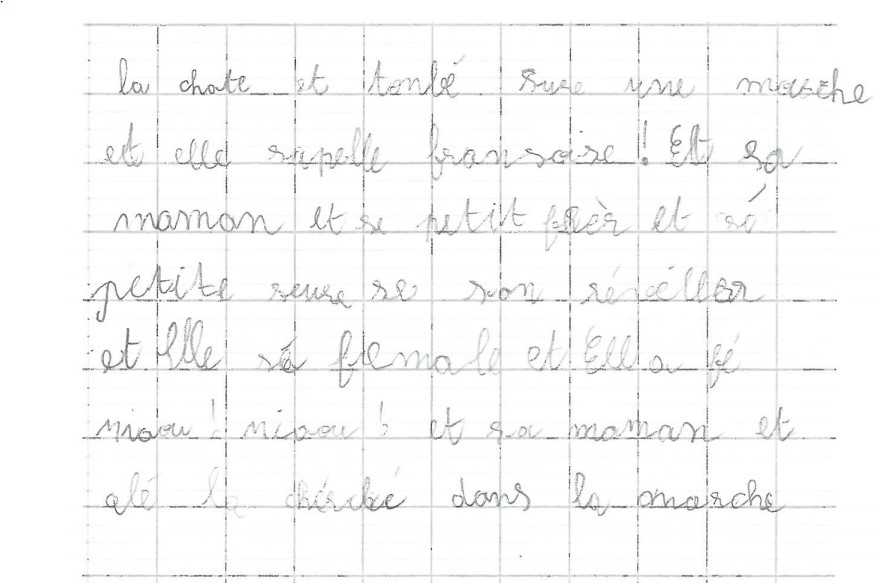 la chate et tombé sure une marche
et elle sapelle fransoise ! Et sa
maman et se petit frèr et sé
petite seure se son révéller
et Elle sé fé mal et Ell a fé
miaou ! miaou ! et sa maman et
alé la chérché dans la marche